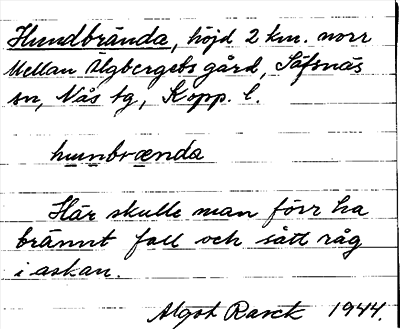 Hundbrända, höjd 2 km. norr
Mellan Älgbergets gård, Säfsnäs
sn, Nås tg, Kopp. l.
hunbrænda
Här skulle man förr ha
brännt fall och sått råg
i askan.
Algot Ranck 1944.